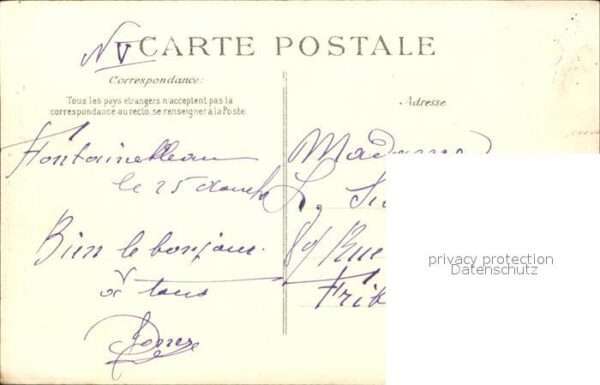 NV
CARTE POSTALE
Correspondance:
Tous les pays étrangers n'acceptent pas la
correspondance au recto, se renseigner à la Poste.
Adresse
Fontainebleau
le 25
Bien le bonjour
à tous
Madame
L.
Rue
privacy protection
Datenschutz